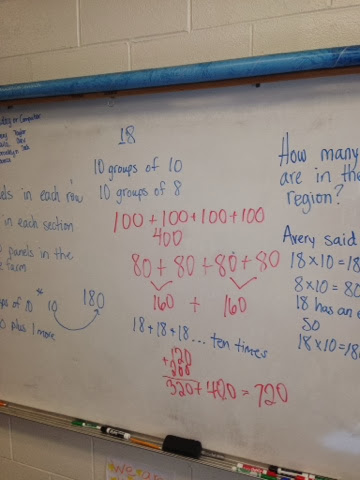 18
10 groups of 10
10 groups of 8
in each row
in each section
panels in the
farm
10 10
180
plus 1 more
100 + 100 + 100 + 100
400
80 + 80 + 80 + 80
160 + 160
18 + 18 + 18 ... ten times
120
+ 200
320 + 400 = 720
How many
are in the
region?
Avery said
18 x 10 = 18
8 x 10 = 80
18 has an
So
18 x 10 = 18